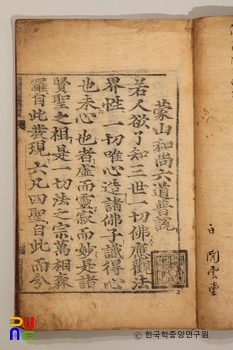 蒙山和尚六道普說
若人欲了知三世一切佛應觀法
界性一切唯心造諸佛子識得心
也未心也者虛而靈寂而妙是諸
賢聖之祖是一切法之宗萬相森
羅自此發現六凡四聖自此而分
白
雲堂
ⓒ 한국학중앙연구원